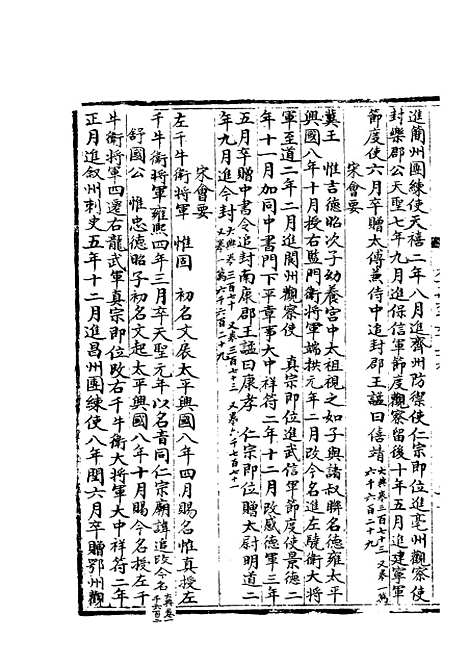 進蘭州團練使天禧二年八月進齊州防禦使仁宗即位進亳州觀察使
封樂郡公天聖七年九月進保信軍節度觀察留後十年五月進建寧軍
節度使六月卒贈太傅兼侍中追封郡王謚曰僖靖大典卷三百七十三又卷一萬六千六百二十九
宋會要
冀王 惟吉德昭次子幼養宮中太祖視之如子與諸叔聯名德雍太平
興國八年十月授右監門衛將軍端拱元年二月改今名進左驍衛大將
軍至道二年二月進閬州觀察使 真宗即位進武信軍節度使景德二
年十一月加同中書門下平章事大中祥符二年十二月改感德軍三年
五月卒贈中書令追封南康郡王謚曰康孝 仁宗即位贈太尉明道二
年九月進今封大典卷三百七十 又卷三百七十三 又卷六千七百七十一 又卷一萬六千六百二十九
宋會要
左千牛衛將軍 惟固 初名文展太平興國八年四月賜名惟真授左
千牛衛將軍雍熙四年三月卒天聖元年以名音同仁宗廟諱追改今名
舒國公 惟忠德昭子初名文起太平興國八年十月賜今名授左千
牛衛將軍四遷右龍武軍真宗即位改右千牛衛大將軍大中祥符二年
正月進叙州刺史五年十二月進昌州團練使八年閏六月卒贈鄂州觀